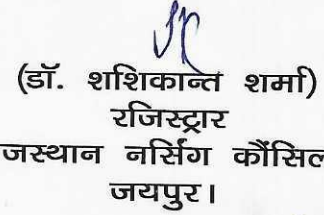 (डॉ. शशिकान्त शर्मा)
रजिस्ट्रार
जस्थान नर्सिग कौंसिल
जयपुर।